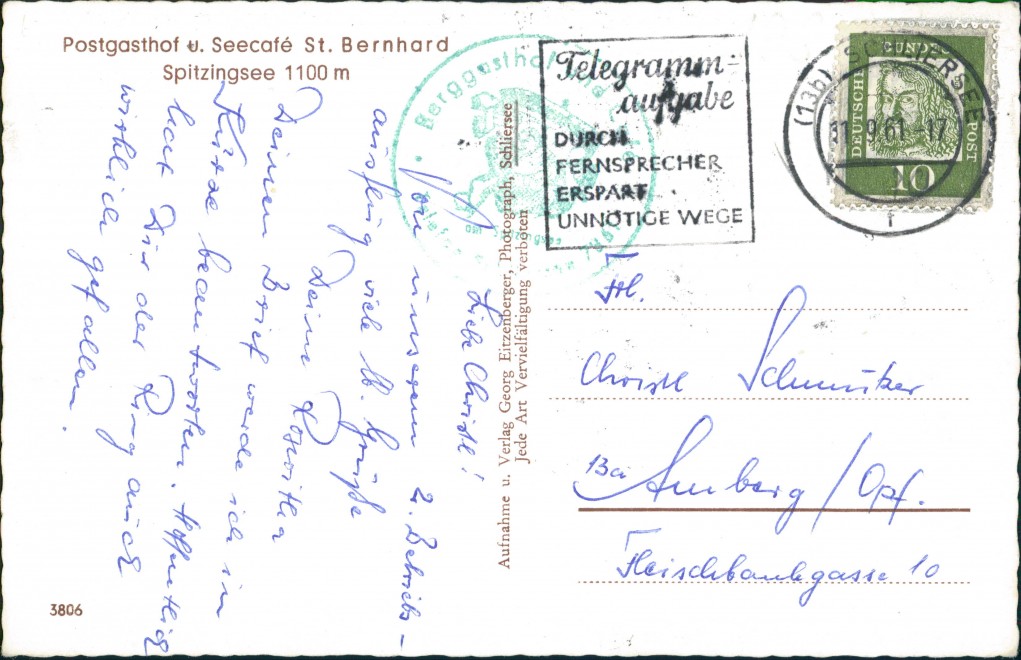 Postgasthof u. Seecafé St. Bernhard
Spitzingsee 1100 m
Liebe Christl!
Von unserem 2. Betriebs-
ausflug viele lb. Grüße
Deine Roswitha
Deinen Brief werde ich in
Kürze beantworten. Hoffentlich
hat Dir der Ring auch
wirklich gefallen.
3806
Aufnahme u. Verlag Georg Eitzenberger, Photograph, Schliersee
Jede Art Vervielfältigung verboten
Berggasthof
am Spitzingsee
Telegramm-
aufgabe
DURCH
FERNSPRECHER
ERSPART
UNNÖTIGE WEGE
(13b) SCHLIERSEE
61-17
f
DEUTSCHE BUNDESPOST
10
Frl.
Christl Schmutzer
13a Amberg/Opf.
Fleischbankgasse 10